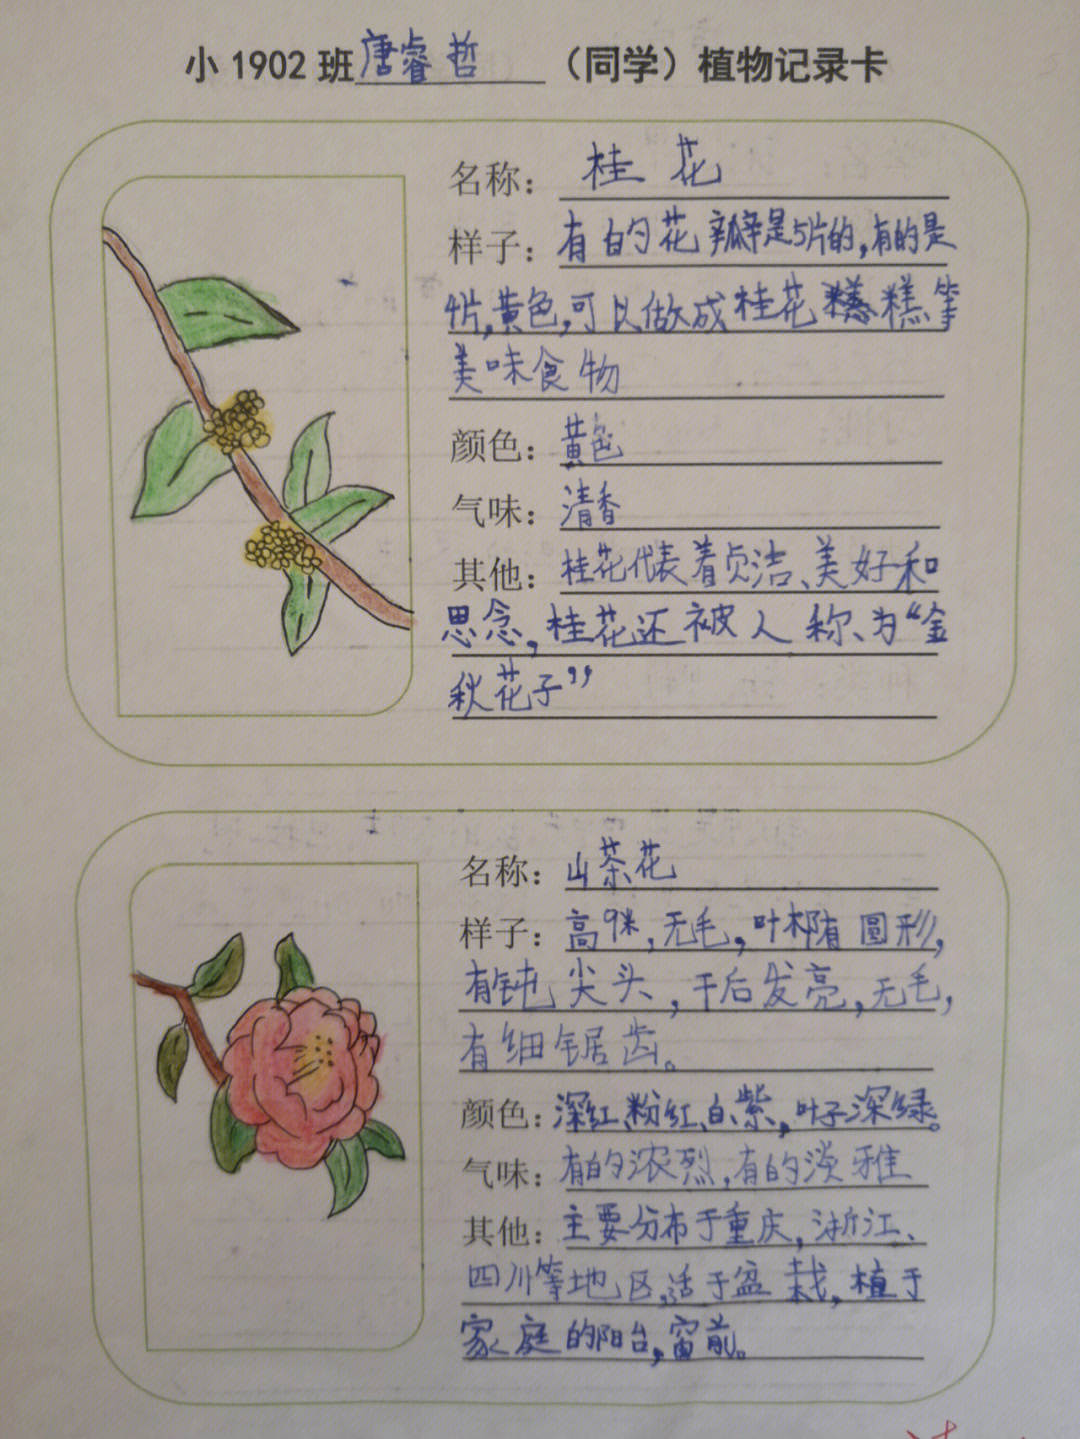 小1902班唐睿哲（同学）植物记录卡
名称：桂花
样子：有的花瓣是5片的,有的是
4片,黄色,可以做成桂花糕等
美味食物
颜色：黄色
气味：清香
其他：桂花代表着贞洁、美好和
思念,桂花还被人称为“金
秋花子”
名称：山茶花
样子：高9米,无毛,叶椭圆形,
有钝尖头,干后发亮,无毛,
有细锯齿。
颜色：深红、粉红、白、紫,叶子深绿。
气味：有的浓烈,有的淡雅
其他：主要分布于重庆,浙江、
四川等地区,适于盆栽,植于
家庭的阳台,窗前。